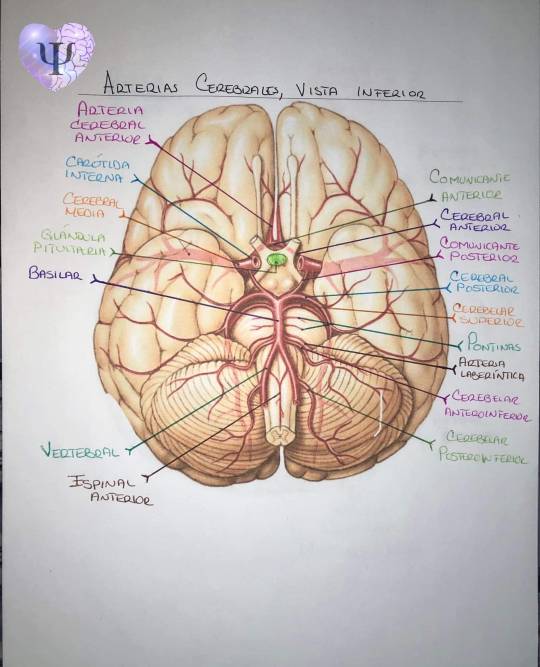 Ψ
ARTERIAS CEREBRALES, VISTA INFERIOR
ARTERIA
CEREBRAL
ANTERIOR
CARÓTIDA
INTERNA
CEREBRAL
MEDIA
GLÁNDULA
PITUITARIA
BASILAR
VERTEBRAL
ESPINAL
ANTERIOR
COMUNICANTE
ANTERIOR
CEREBRAL
ANTERIOR
COMUNICANTE
POSTERIOR
CEREBRAL
POSTERIOR
CEREBELAR
SUPERIOR
PONTINAS
ARTERIA
LABERÍNTICA
CEREBELAR
ANTEROINFERIOR
CEREBELAR
POSTEROINFERIOR